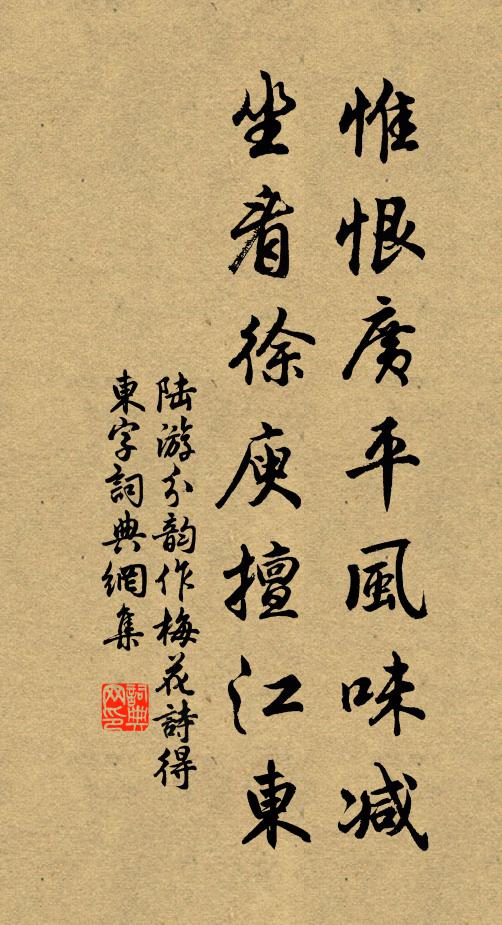 惟恨廣平風味减
坐看徐庾擅江東
陆游分韵作梅花詩得
東字詞典網集
詞典网印